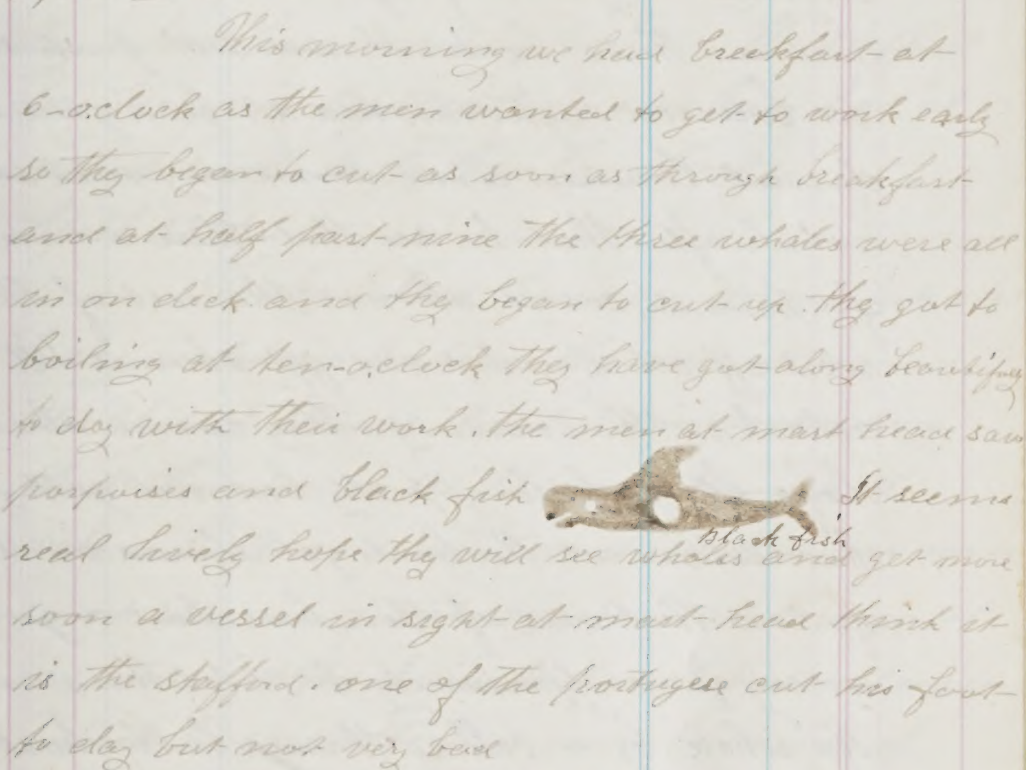 This morning we had breakfast at
6-o.clock as the men wanted to get to work early
so they began to cut as soon as through breakfast
and at half past nine the three whales were all
in on deck and they began to cut up. they got to
boiling at ten-o,clock they have got along beautifuly
to day with their work. the men at mast head saw
porpoises and black fish It seems
Black fish
real lively hope they will see whales and get more
soon a vessel in sight at mast head think it
is the stafford. one of the portugese cut his foot
to day but not very bad